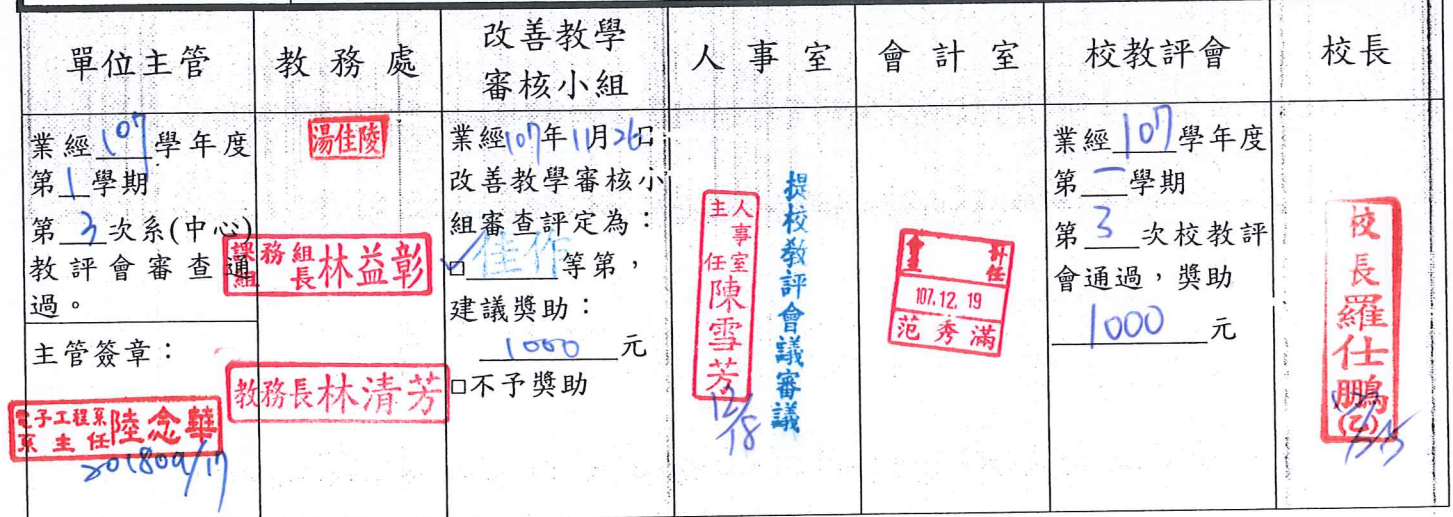 單位主管
教務處
改善教學
審核小組
人事室
會計室
校教評會
校長
業經107學年度
第1學期
第3次系(中心)
教評會審查通
過。
主管簽章：
電子工程系
系主任陸念華
201809/17
湯佳陵
課務組
組長林益彰
教務長林清芳
業經107年11月26日
改善教學審核小
組審查評定為：
☑佳作等第，
建議獎助：
1000元
□不予獎助
人事室
主任陳雪芳
12/18
提校教評會議審議
會計
主任
107.12.19
范秀滿
業經107學年度
第一學期
第3次校教評
會通過，獎助
1000元
校長羅仕鵬
(乙)